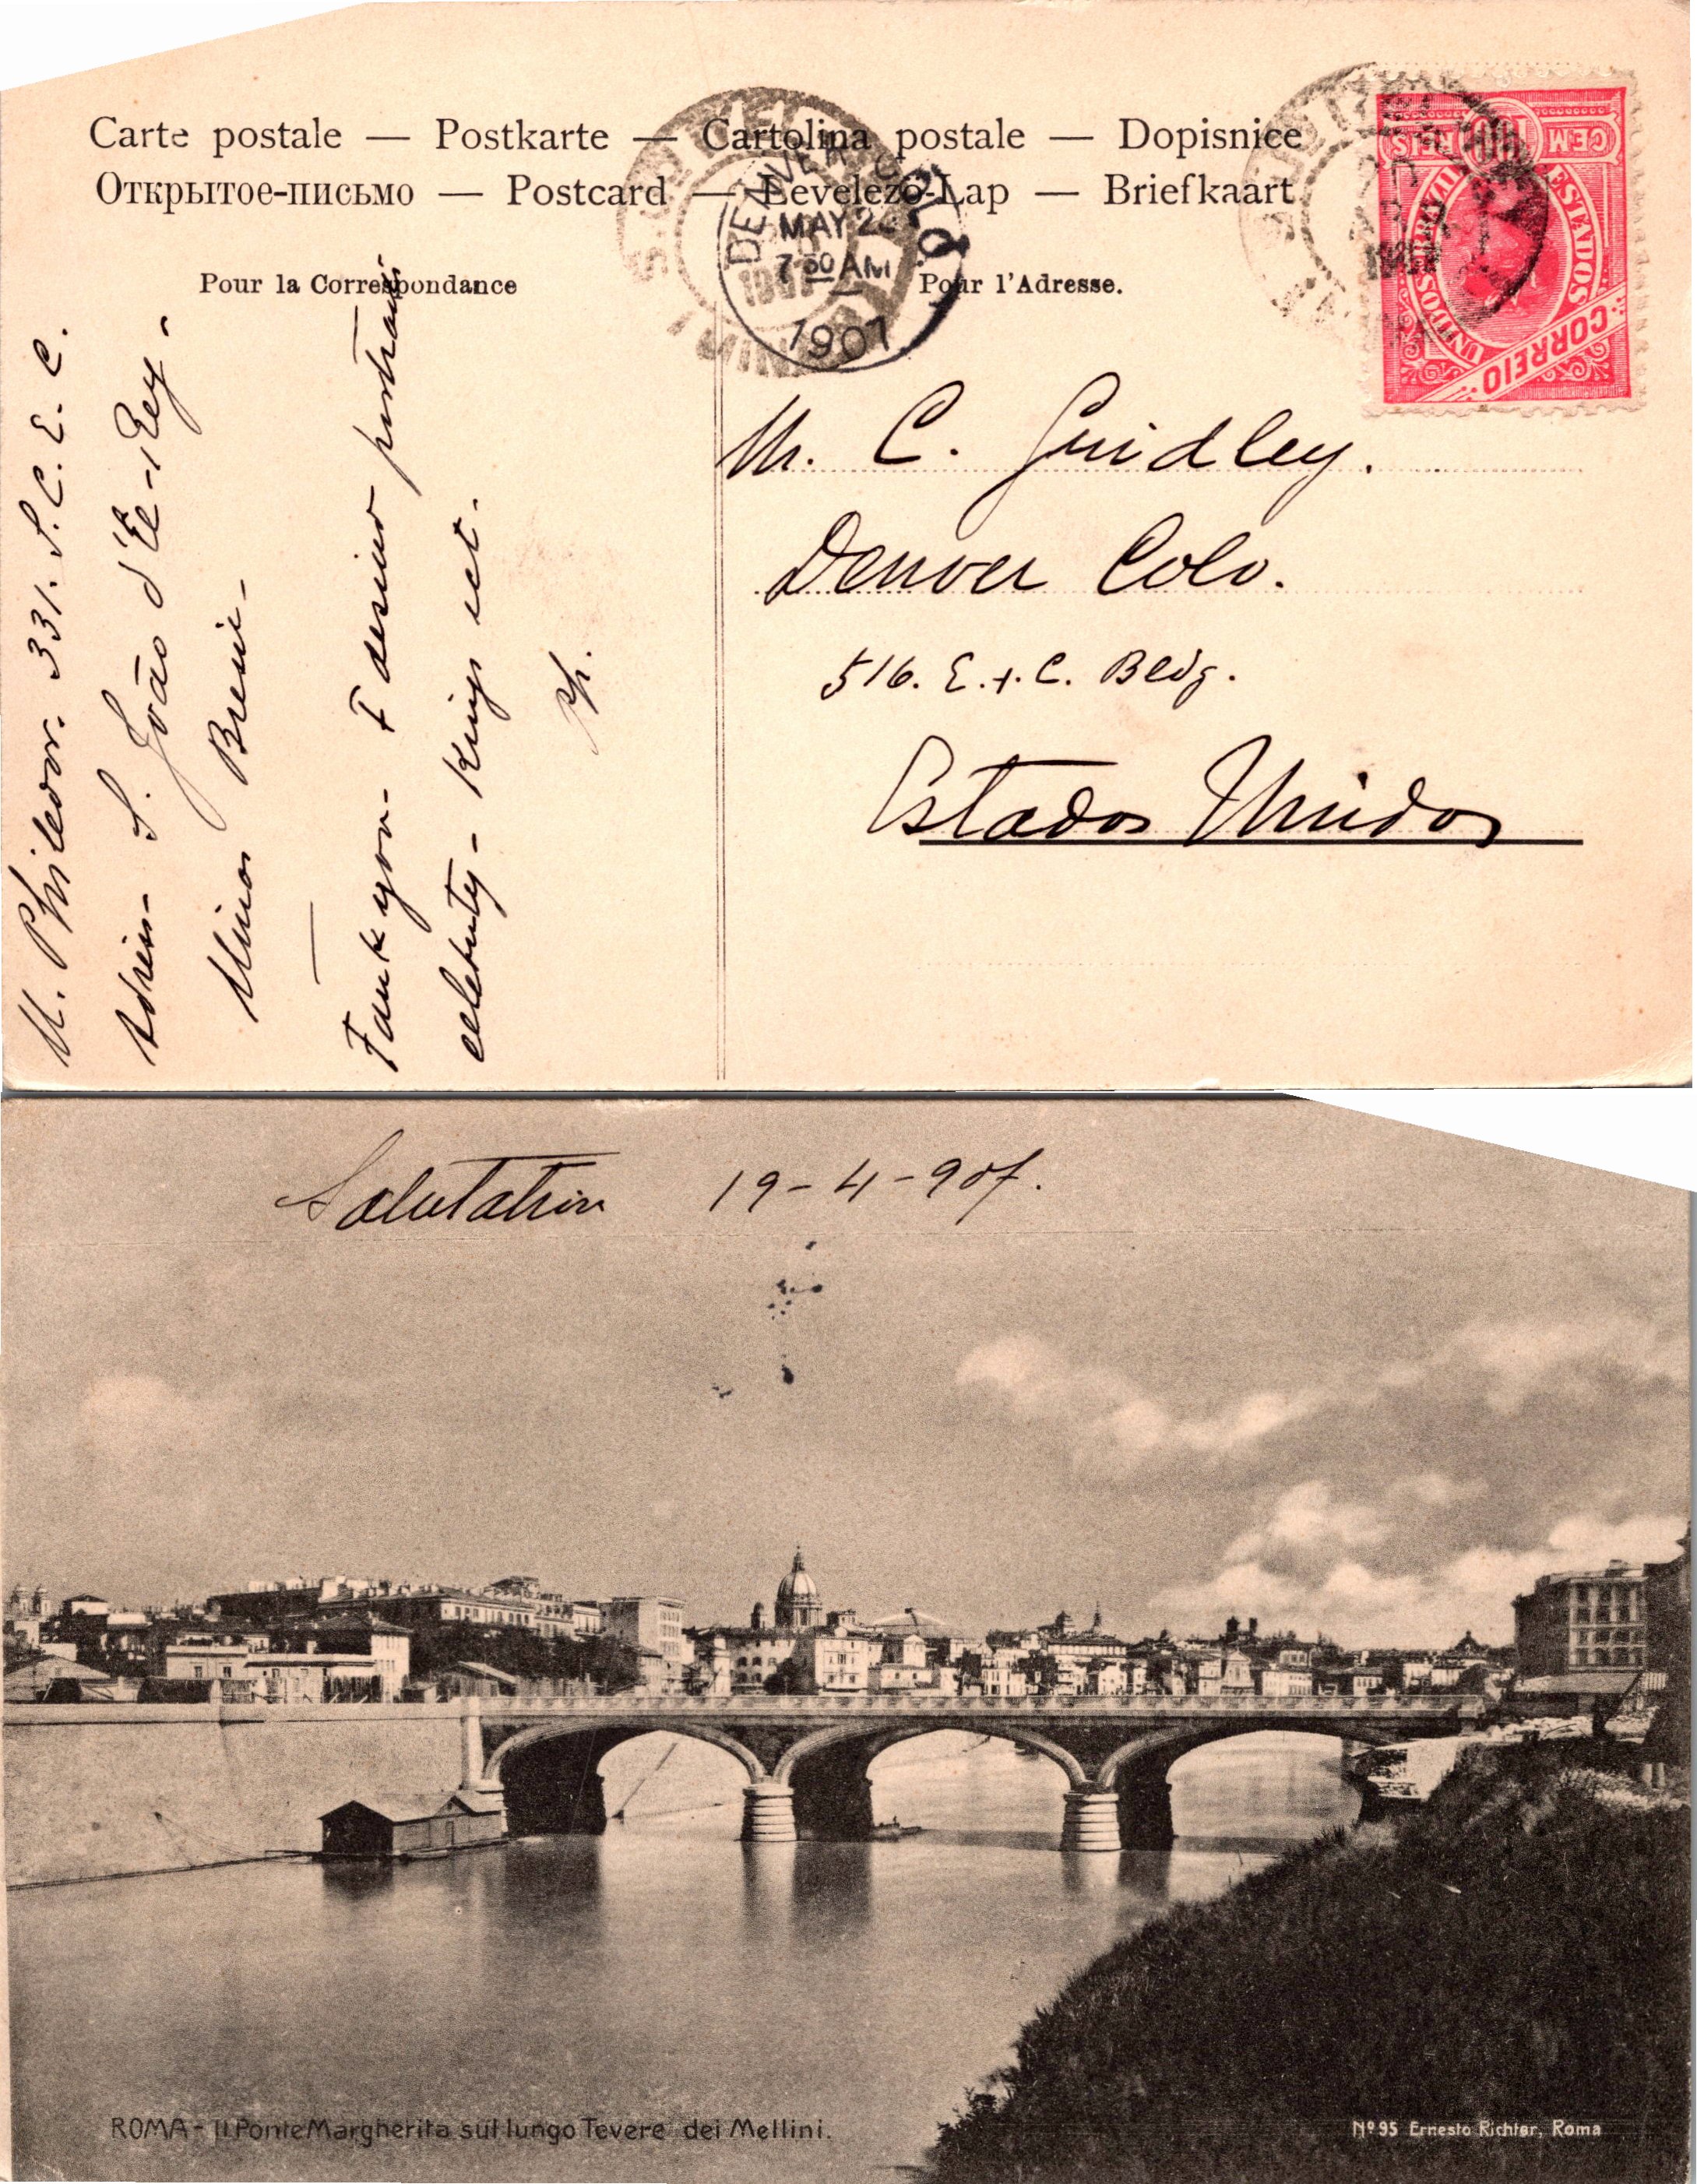 Carte postale — Postkarte — Cartolina postale — Dopisnice
Открытое-письмо — Postcard — Levelezö-Lap — Briefkaart
Pour la Correspondance
Pour l'Adresse.
DENVER COLO.
MAY 2
7 30 AM
1907
CEM 100 REIS
ESTADOS UNIDOS BRAZIL
CORREIO
M. C. Gridley.
Denver Colo.
516. E. +. C. Bldg.
Estados Unidos
M. Phileor. 331. S. C. E. C.
Adress- S. João d'El-Rey-
Minas Brésil-
Tank you. I desire postcards
celebrity- Kings ect.
Ph.
Salutation 19-4-907.
ROMA - Il Ponte Margherita sul lungo Tevere dei Mellini.
Nº 95 Ernesto Richter, Roma